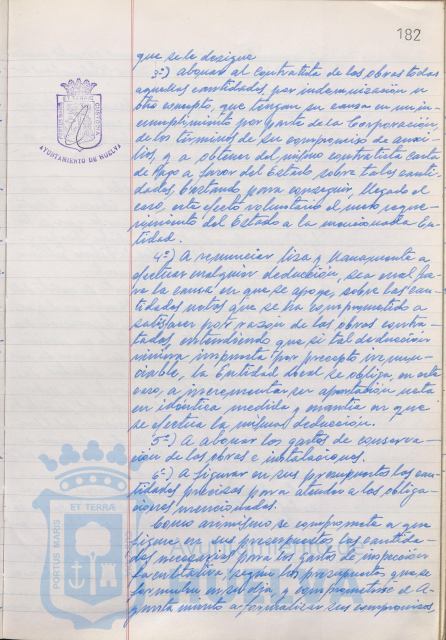 182
que se le designe
3º) Abonar al Contratista de las obras todas
aquellas cantidades por indemnización u
otro concepto, que tengan su causa en un in-
cumplimiento por parte de la Corporación
de los términos de su compromiso de auxi-
lios, y a obtener del mismo contratista carta
de Pago a favor del Estado sobre tales canti-
dades bastando para conseguir, llegado el
caso, este efecto voluntario el mero reque-
rimiento del Estado a la mencionada En-
tidad.
4º) A renunciar lisa y llanamente a
efectuar cualquier deducción, sea cual fue-
re la causa en que se apoye, sobre las can-
tidades netas que se ha comprometido a
satisfacer por razón de las obras contra-
tadas, entendiendo que si tal deducción
viniera impuesta por precepto inexcu-
sable, la Entidad Local se obliga, en este
caso, a incrementar su aportación neta
en idéntica medida y cuantía en que
se efectúa la misma deducción.
5º) A abonar los gastos de conserva-
ción de las obras e instalaciones.
6º) A figurar en sus presupuestos las can-
tidades precisas para atender a las obliga-
ciones mencionadas.
Como asimismo se compromete a que
figure en sus presupuestos las cantida-
des necesarias para los gastos de inspección
facultativa, según los presupuestos que se
formulen en su día, y comprometiéndose el A-
yuntamiento a formalizar sus compromisos,
AYUNTAMIENTO DE HUELVA
PORTUS MARIS
ET TERRAE CUSTODIA
Ayuntamiento de